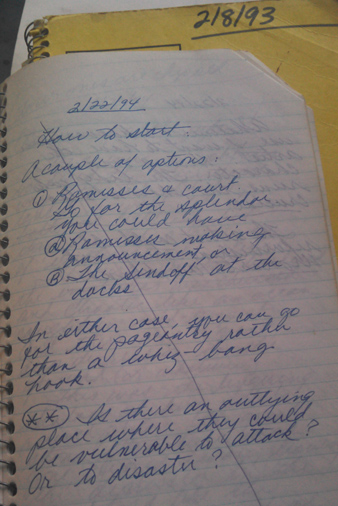 2/8/93
2/22/94
How to start:
A couple of options:
① Ramisses & court
Go for the splendor
you could have
Ⓐ Ramisses making
announcement, or
Ⓑ The sendoff at the
docks
In either case, you can go
for the pageantry rather
than a whiz-bang
hook.
** Is there an outlying
place where they could
be vulnerable to attack?
Or to disaster?